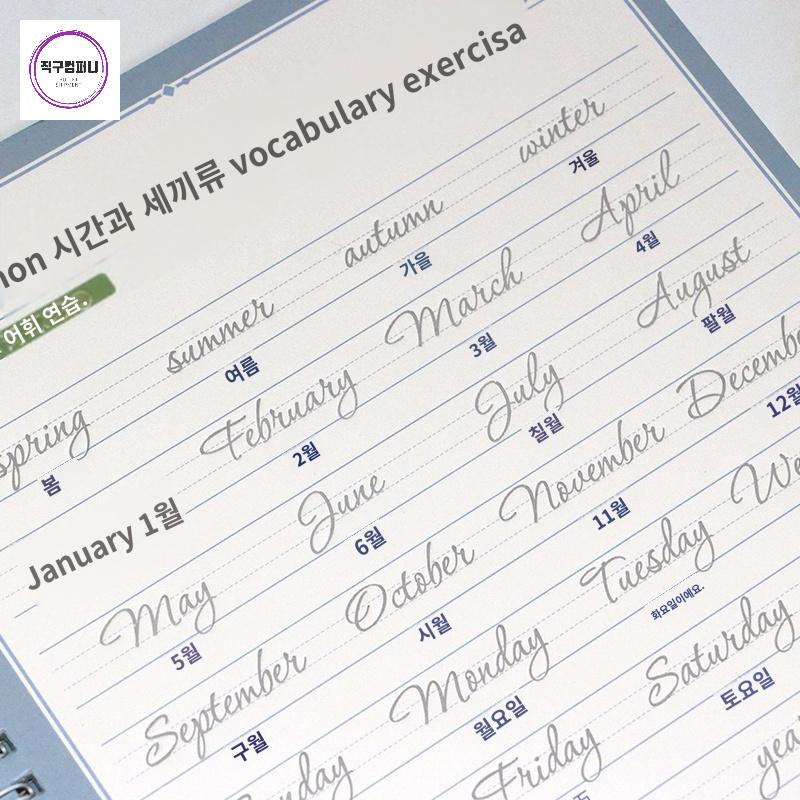 직구컴퍼니
non 시간과 세끼류 vocabulary exercisa
어휘 연습.
spring summer autumn winter
봄 여름 가을 겨울
January 1월 February March April
2월 3월 4월
May June July August
5월 6월 칠월 팔월
September October November December
구월 시월 11월 12월
Monday Tuesday
월요일 화요일이에요.
Friday Saturday
토요일